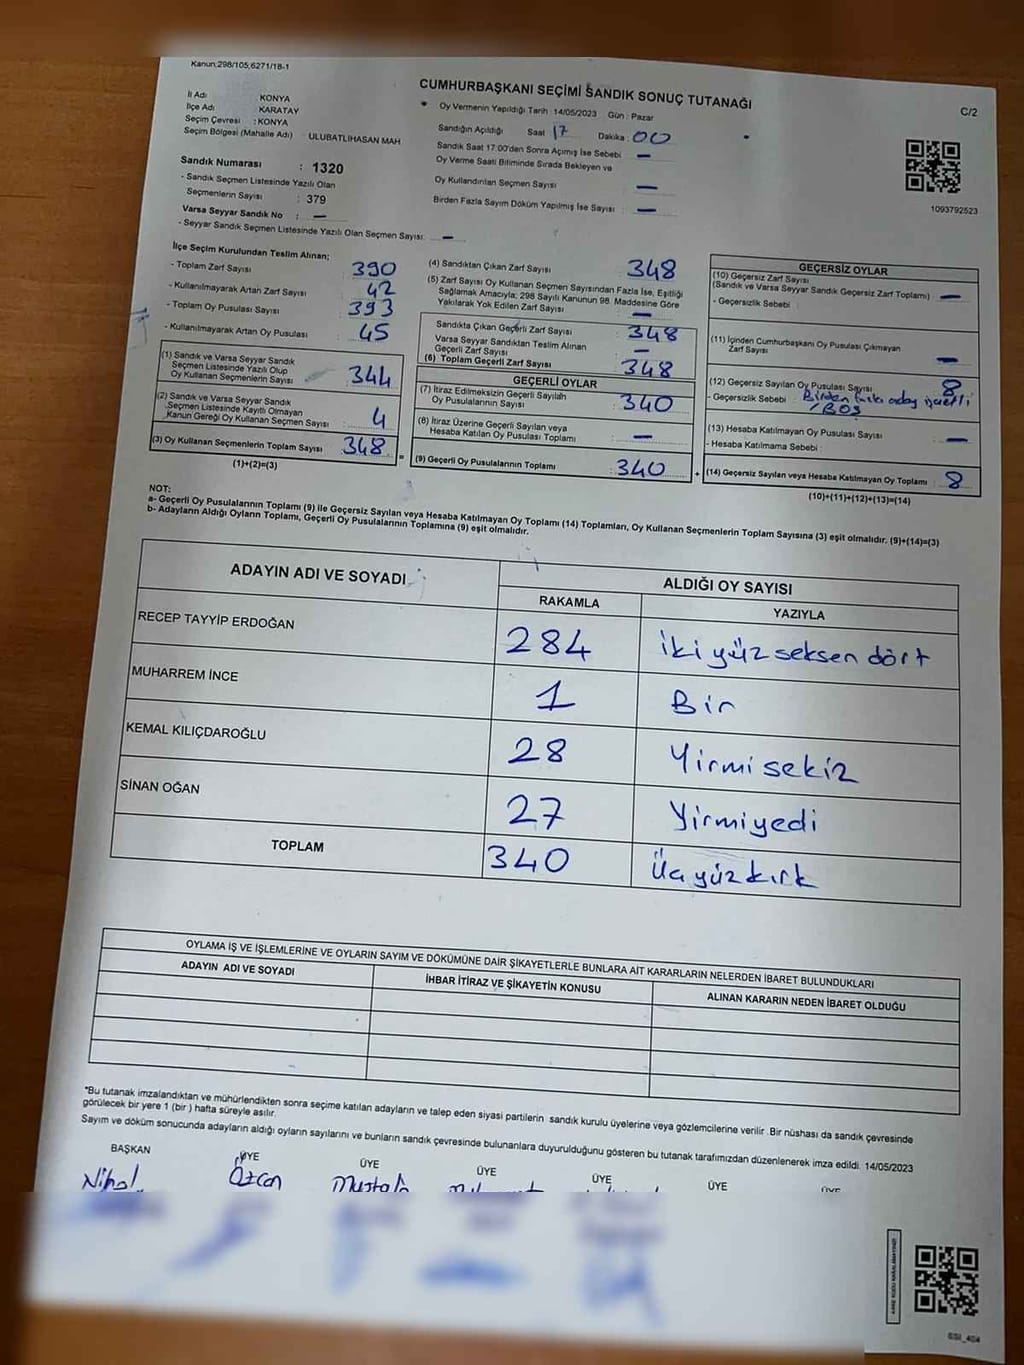 Kanun;298/105;6271/18-1
CUMHURBAŞKANI SEÇİMİ SANDIK SONUÇ TUTANAĞI
C/2
İl Adı KONYA
İlçe Adı KARATAY
Seçim Çevresi : KONYA
Seçim Bölgesi (Mahalle Adı) : ULUBATLIHASAN MAH
Oy Vermenin Yapıldığı Tarih 14/05/2023 Gün : Pazar
Sandığın Açıldığı Saat 17 Dakika : 00
Sandık Saat 17:00'den Sonra Açımış İse Sebebi : —
Oy Verme Saati Bitiminde Sırada Bekleyen ve
Oy Kullandırılan Seçmen Sayısı : —
Birden Fazla Sayım Döküm Yapılmış İse Sayısı : —
1093792523
Sandık Numarası : 1320
- Sandık Seçmen Listesinde Yazılı Olan
Seçmenlerin Sayısı : 379
Varsa Seyyar Sandık No : —
- Seyyar Sandık Seçmen Listesinde Yazılı Olan Seçmen Sayısı: —
İlçe Seçim Kurulundan Teslim Alınan;
- Toplam Zarf Sayısı 390
- Kullanılmayarak Artan Zarf Sayısı : 42
- Toplam Oy Pusulası Sayısı : 393
- Kullanılmayarak Artan Oy Pusulası : 45
(1) Sandık ve Varsa Seyyar Sandık
Seçmen Listesinde Yazılı Olup
Oy Kullanan Seçmenlerin Sayısı : 344
(2) Sandık ve Varsa Seyyar Sandık
Seçmen Listesinde Kayıtlı Olmayan
Kanun Gereği Oy Kullanan Seçmen Sayısı : 4
(3) Oy Kullanan Seçmenlerin Toplam Sayısı : 348
(1)+(2)=(3)
=
(4) Sandıktan Çıkan Zarf Sayısı : 348
(5) Zarf Sayısı Oy Kullanan Seçmen Sayısından Fazla İse, Eşitliği
Sağlamak Amacıyla; 298 Sayılı Kanunun 98. Maddesine Göre
Yakılarak Yok Edilen Zarf Sayısı : —
Sandıkta Çıkan Geçerli Zarf Sayısı : 348
Varsa Seyyar Sandıktan Teslim Alınan
Geçerli Zarf Sayısı : —
(6) Toplam Geçerli Zarf Sayısı : 348
GEÇERLİ OYLAR
(7) İtiraz Edilmeksizin Geçerli Sayılan
Oy Pusulalarının Sayısı : 340
(8) İtiraz Üzerine Geçerli Sayılan veya
Hesaba Katılan Oy Pusulası Toplamı : —
(9) Geçerli Oy Pusulalarının Toplamı : 340
+
GEÇERSİZ OYLAR
(10) Geçersiz Zarf Sayısı
(Sandık ve Varsa Seyyar Sandık Geçersiz Zarf Toplamı) : —
- Geçersizlik Sebebi :
(11) İçinden Cumhurbaşkanı Oy Pusulası Çıkmayan
Zarf Sayısı : —
(12) Geçersiz Sayılan Oy Pusulası Sayısı : 8
- Geçersizlik Sebebi : Birden fazla aday işaretli
/BOŞ
(13) Hesaba Katılmayan Oy Pusulası Sayısı : —
- Hesaba Katılmama Sebebi :
(14) Geçersiz Sayılan veya Hesaba Katılmayan Oy Toplamı : 8
(10)+(11)+(12)+(13)=(14)
NOT:
a- Geçerli Oy Pusulalarının Toplamı (9) ile Geçersiz Sayılan veya Hesaba Katılmayan Oy Toplamı (14) Toplamları, Oy Kullanan Seçmenlerin Toplam Sayısına (3) eşit olmalıdır. (9)+(14)=(3)
b- Adayların Aldığı Oyların Toplamı, Geçerli Oy Pusulalarının Toplamına (9) eşit olmalıdır.
ADAYIN ADI VE SOYADI
ALDIĞI OY SAYISI
RAKAMLA YAZIYLA
RECEP TAYYİP ERDOĞAN 284 ikiyüzseksendört
MUHARREM İNCE 1 Bir
KEMAL KILIÇDAROĞLU 28 Yirmisekiz
SİNAN OĞAN 27 Yirmiyedi
TOPLAM 340 Üçyüzkırk
OYLAMA İŞ VE İŞLEMLERİNE VE OYLARIN SAYIM VE DÖKÜMÜNE DAİR ŞİKAYETLERLE BUNLARA AİT KARARLARIN NELERDEN İBARET BULUNDUKLARI
ADAYIN ADI VE SOYADI İHBAR İTİRAZ VE ŞİKAYETİN KONUSU ALINAN KARARIN NEDEN İBARET OLDUĞU
*Bu tutanak imzalandıktan ve mühürlendikten sonra seçime katılan adayların ve talep eden siyasi partilerin sandık kurulu üyelerine veya gözlemcilerine verilir .Bir nüshası da sandık çevresinde
görülecek bir yere 1 (bir ) hafta süreyle asılır.
Sayım ve döküm sonucunda adayların aldığı oyların sayılarını ve bunların sandık çevresinde bulunanlara duyurulduğunu gösteren bu tutanak tarafımızdan düzenlenerek imza edildi. 14/05/2023
BAŞKAN ÜYE ÜYE ÜYE ÜYE ÜYE ÜYE
Nihal Özcan Mustafa
GSI_404